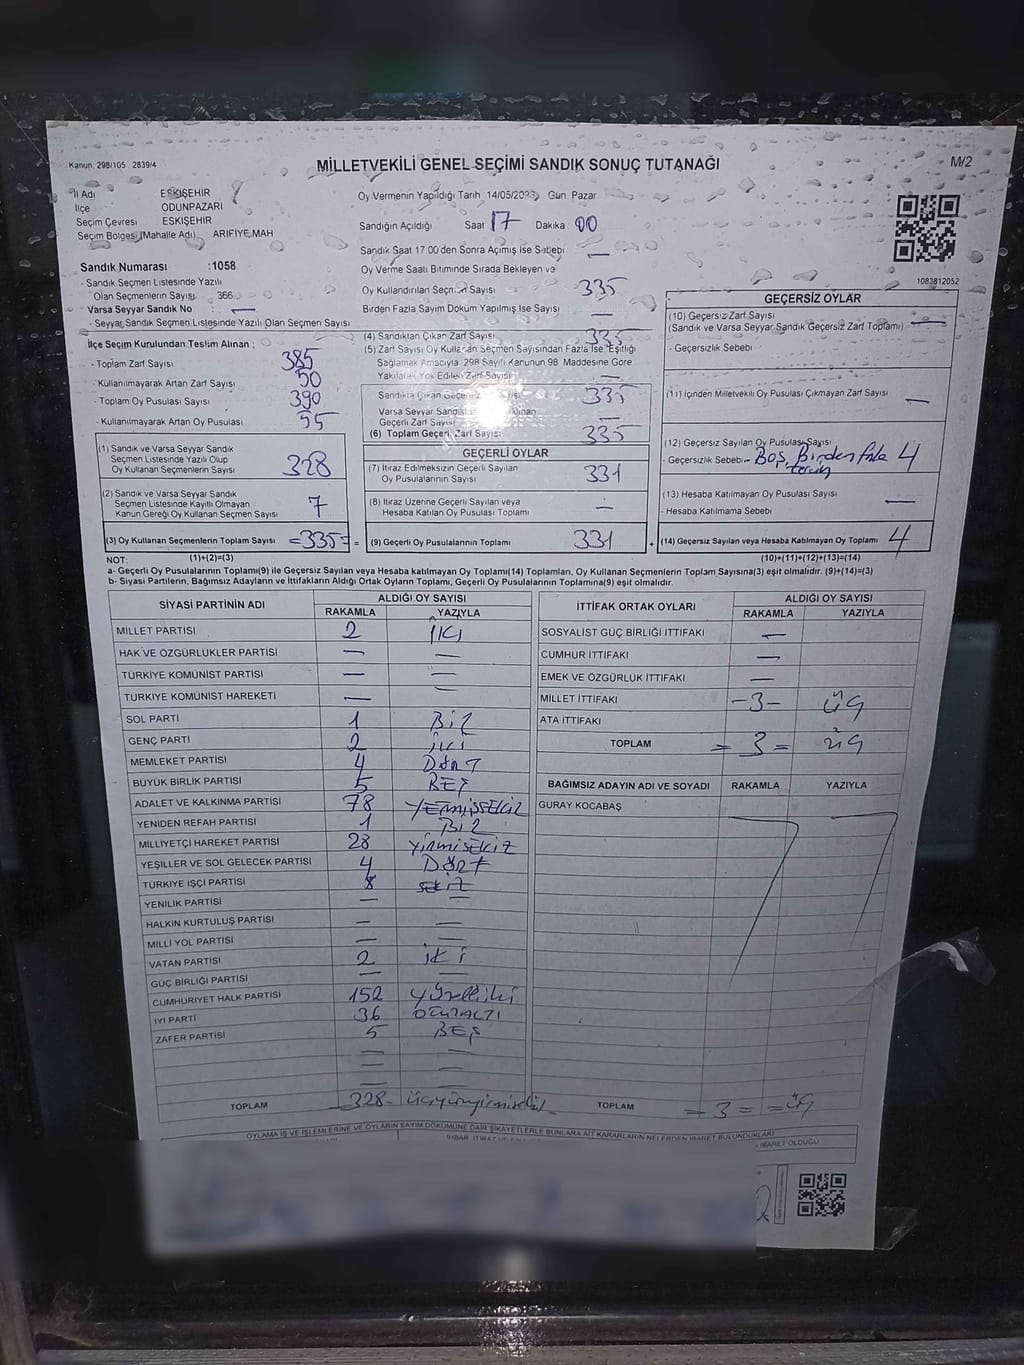 Kanun: 298/105 2839/4
MİLLETVEKİLİ GENEL SEÇİMİ SANDIK SONUÇ TUTANAĞI
M/2
İl Adı ESKİŞEHİR
İlçe ODUNPAZARI
Seçim Çevresi ESKİŞEHİR
Seçim Bölgesi (Mahalle Adı) ARİFİYE MAH
Sandık Numarası :1058
- Sandık Seçmen Listesinde Yazılı
Olan Seçmenlerin Sayısı 366
Varsa Seyyar Sandık No : —
- Seyyar Sandık Seçmen Listesinde Yazılı Olan Seçmen Sayısı
İlçe Seçim Kurulundan Teslim Alınan ;
- Toplam Zarf Sayısı 385
- Kullanılmayarak Artan Zarf Sayısı 50
- Toplam Oy Pusulası Sayısı 390
- Kullanılmayarak Artan Oy Pusulası 55
(1) Sandık ve Varsa Seyyar Sandık
Seçmen Listesinde Yazılı Olup
Oy Kullanan Seçmenlerin Sayısı 328
(2) Sandık ve Varsa Seyyar Sandık
Seçmen Listesinde Kayıtlı Olmayan
Kanun Gereği Oy Kullanan Seçmen Sayısı 7
(3) Oy Kullanan Seçmenlerin Toplam Sayısı =335= =
Oy Vermenin Yapıldığı Tarih 14/05/2023 Gün Pazar
Sandığın Açıldığı Saat 17 Dakika 00
Sandık Saat 17.00'den Sonra Açılmış İse Sebebi —
Oy Verme Saati Bitiminde Sırada Bekleyen ve
Oy Kullandırılan Seçmen Sayısı 335
Birden Fazla Sayım Döküm Yapılmış İse Sayısı —
(4) Sandıktan Çıkan Zarf Sayısı 335
(5) Zarf Sayısı Oy Kullanan Seçmen Sayısından Fazla İse Eşitliği
Sağlamak Amacıyla 298 Sayılı Kanunun 98 Maddesine Göre
Yakılarak Yok Edilen Zarf Sayısı —
Sandıkta Çıkan Geçerli Sayısı 335
Varsa Seyyar
Geçerli Zarf Sayısı —
(6) Toplam Geçerli Zarf Sayısı 335
GEÇERLİ OYLAR
(7) İtiraz Edilmeksizin Geçerli Sayılan
Oy Pusulalarının Sayısı 331
(8) İtiraz Üzerine Geçerli Sayılan veya
Hesaba Katılan Oy Pusulası Toplamı —
(9) Geçerli Oy Pusulalarının Toplamı 331 +
1083812052
GEÇERSİZ OYLAR
(10) Geçersiz Zarf Sayısı
(Sandık ve Varsa Seyyar Sandık Geçersiz Zarf Toplamı) —
- Geçersizlik Sebebi
(11) İçinden Milletvekili Oy Pusulası Çıkmayan Zarf Sayısı —
(12) Geçersiz Sayılan Oy Pusulası Sayısı 4
- Geçersizlik Sebebi - Boş, Birden fazla
tercih
(13) Hesaba Katılmayan Oy Pusulası Sayısı —
- Hesaba Katılmama Sebebi
(14) Geçersiz Sayılan veya Hesaba Katılmayan Oy Toplamı 4
NOT: (1)+(2)=(3) (10)+(11)+(12)+(13)=(14)
a- Geçerli Oy Pusulalarının Toplamı(9) ile Geçersiz Sayılan veya Hesaba katılmayan Oy Toplamı(14) Toplamları, Oy Kullanan Seçmenlerin Toplam Sayısına(3) eşit olmalıdır. (9)+(14)=(3)
b- Siyasi Partilerin, Bağımsız Adayların ve İttifakların Aldığı Ortak Oyların Toplamı, Geçerli Oy Pusulalarının Toplamına(9) eşit olmalıdır.
SİYASİ PARTİNİN ADI ALDIĞI OY SAYISI
RAKAMLA YAZIYLA
MİLLET PARTİSİ 2 İKİ
HAK VE ÖZGÜRLÜKLER PARTİSİ — —
TÜRKİYE KOMÜNİST PARTİSİ — —
TÜRKİYE KOMÜNİST HAREKETİ — —
SOL PARTİ 1 BİR
GENÇ PARTİ 2 İKİ
MEMLEKET PARTİSİ 4 DÖRT
BÜYÜK BİRLİK PARTİSİ 5 BEŞ
ADALET VE KALKINMA PARTİSİ 78 YETMİŞSEKİZ
YENİDEN REFAH PARTİSİ 1 BİR
MİLLİYETÇİ HAREKET PARTİSİ 28 YİRMİSEKİZ
YEŞİLLER VE SOL GELECEK PARTİSİ 4 DÖRT
TÜRKİYE İŞÇİ PARTİSİ 8 SEKİZ
YENİLİK PARTİSİ — —
HALKIN KURTULUŞ PARTİSİ — —
MİLLİ YOL PARTİSİ — —
VATAN PARTİSİ 2 İKİ
GÜÇ BİRLİĞİ PARTİSİ — —
CUMHURİYET HALK PARTİSİ 152 Yüzelliiki
İYİ PARTİ 36 OTUZALTI
ZAFER PARTİSİ 5 BEŞ
— —
— —
— —
TOPLAM -328- üçyüzyirmisekiz
İTTİFAK ORTAK OYLARI ALDIĞI OY SAYISI
RAKAMLA YAZIYLA
SOSYALİST GÜÇ BİRLİĞİ İTTİFAKI —
CUMHUR İTTİFAKI —
EMEK VE ÖZGÜRLÜK İTTİFAKI —
MİLLET İTTİFAKI -3- üç
ATA İTTİFAKI
TOPLAM = 3 = üç
BAĞIMSIZ ADAYIN ADI VE SOYADI RAKAMLA YAZIYLA
GÜRAY KOCABAŞ
TOPLAM = 3 = = üç
OYLAMA İŞ VE İŞLEMLERİNE VE OYLARIN SAYIM DÖKÜMÜNE DAİR ŞİKAYETLERLE BUNLARA AİT KARARLARIN NELERDEN İBARET BULUNDUKLARI
İHBAR, İTİRAZ
İBARET OLDUĞU